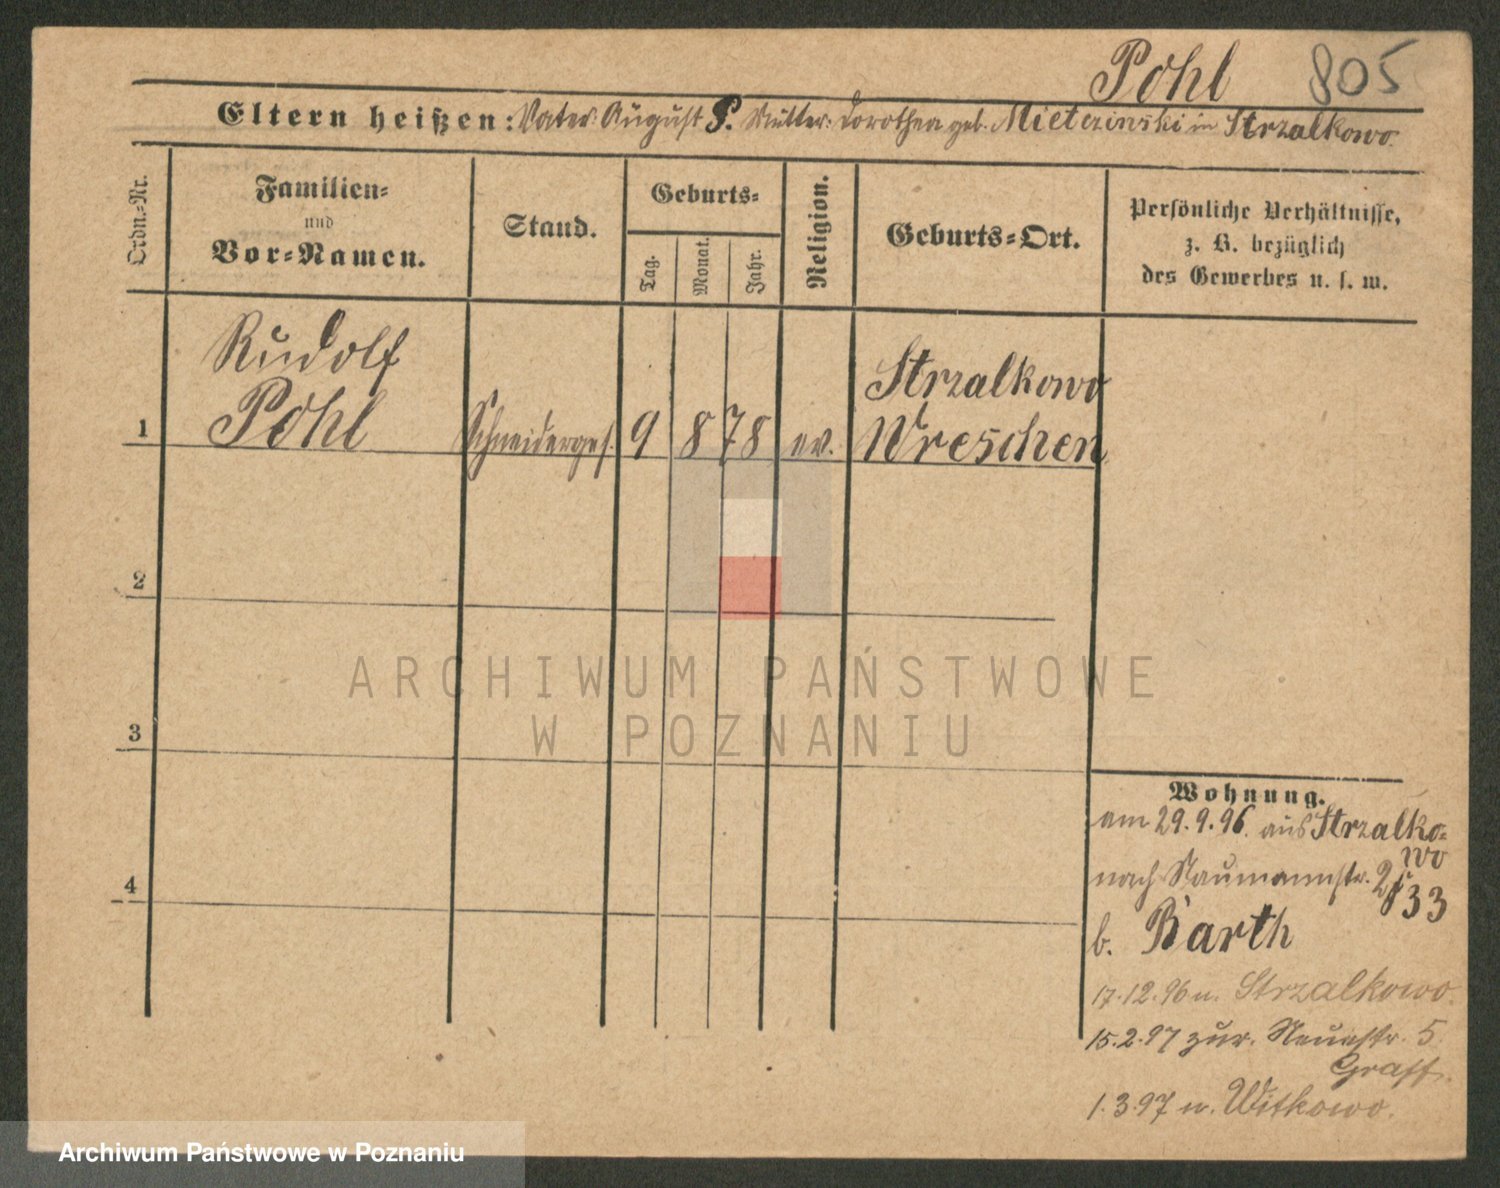 Pohl 805
Eltern heißen: Vater: August P. Mutter: Dorothea geb. Mieterzinski in Strzalkowo.
Ordn.-Nr.
Familien-
und
Vor-Namen.
Stand.
Geburts-
Tag.
Monat.
Jahr.
Religion.
Geburts-Ort.
Persönliche Verhältnisse,
z. B. bezüglich
des Gewerbes u. s. w.
Rudolf
Pohl
1 Schneiderges. 9 8 78 ev.
Strzalkowo
Wreschen
2
3
4
Wohnung.
am 29.9.96. aus Strzalko-
wo
nach Naumannstr.
33
b. Barth
17.12.96 n. Strzalkowo.
15.2.97 zur. Neuestr. 5
Graff.
1.3.97 n. Witkowo.
ARCHIWUM PAŃSTWOWE
W POZNANIU
Archiwum Państwowe w Poznaniu